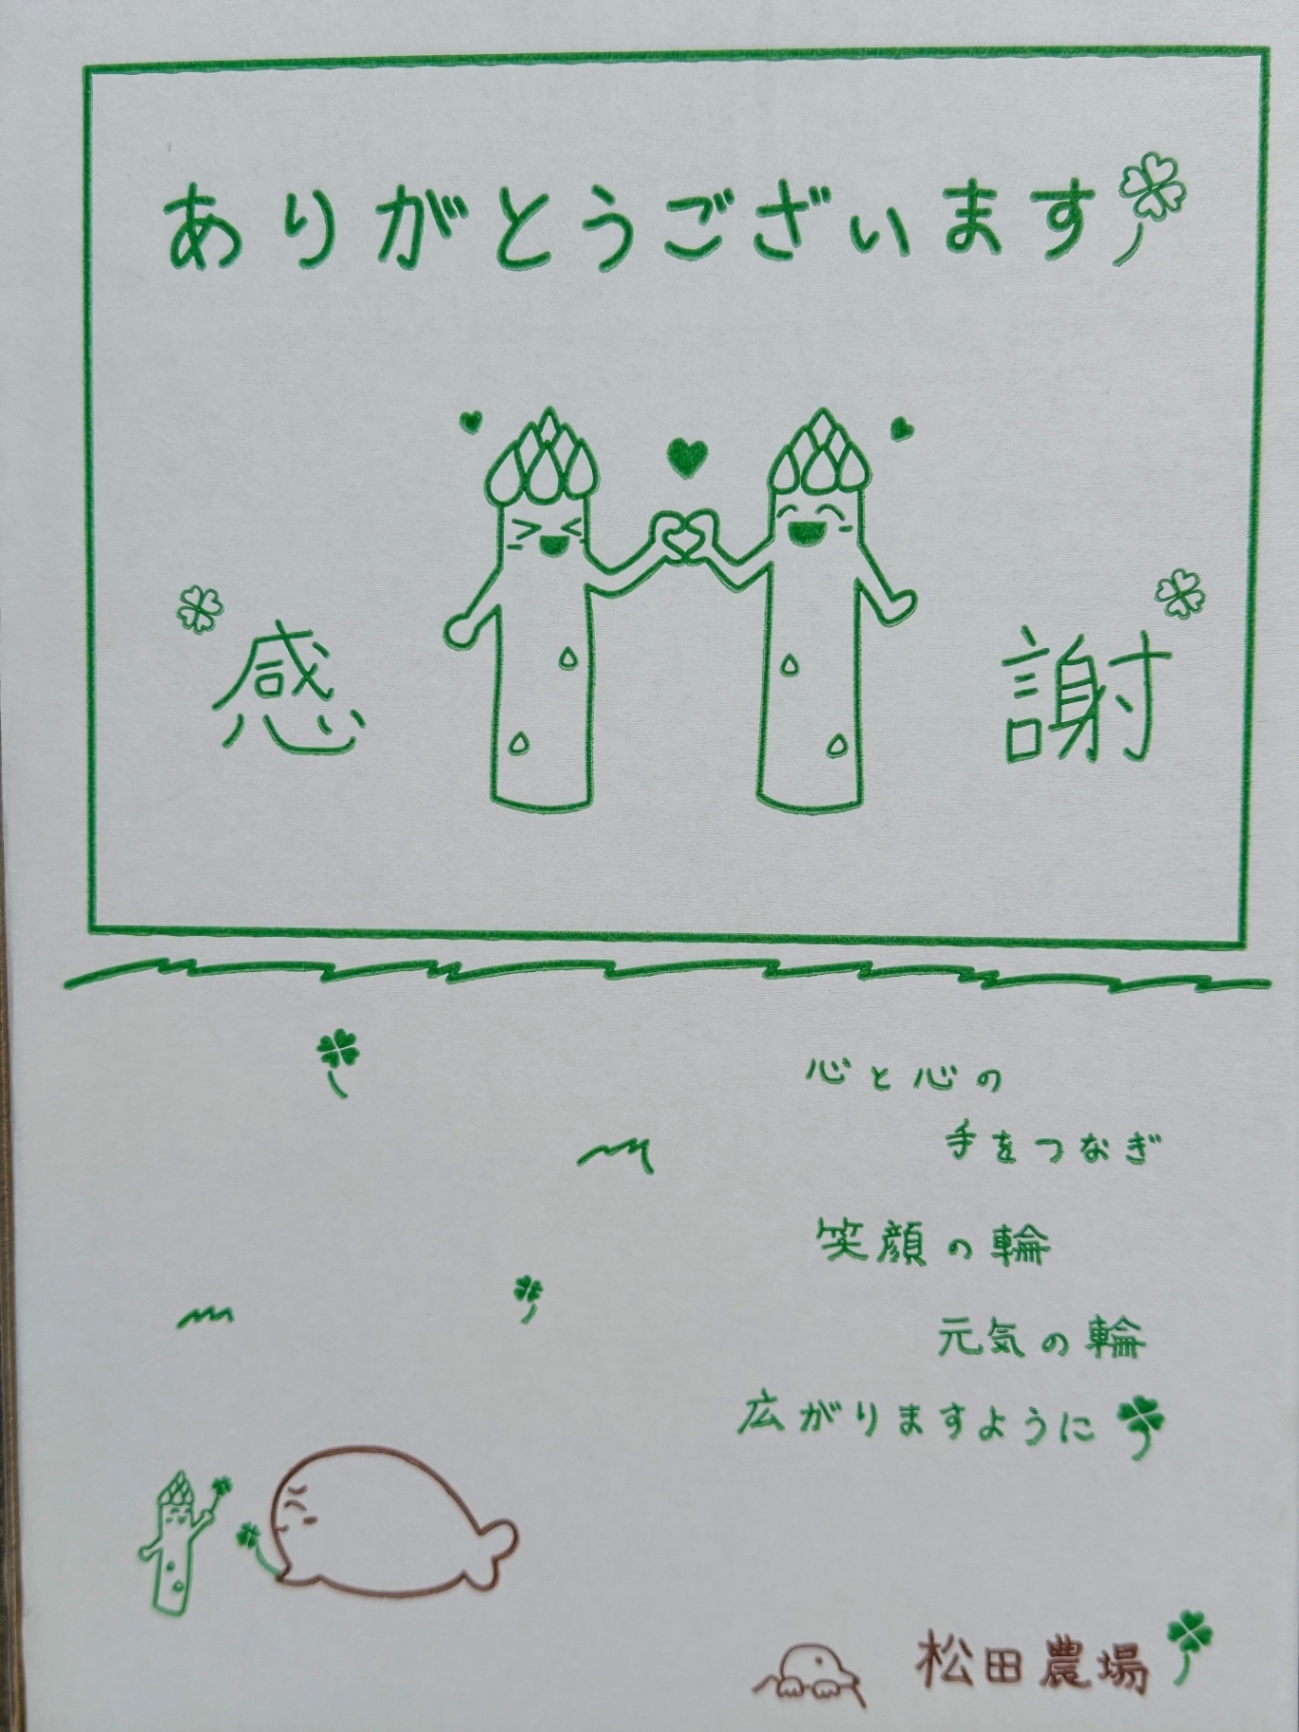 ありがとうございます
感謝
心と心の
手をつなぎ
笑顔の輪
元気の輪
広がりますように
松田農場